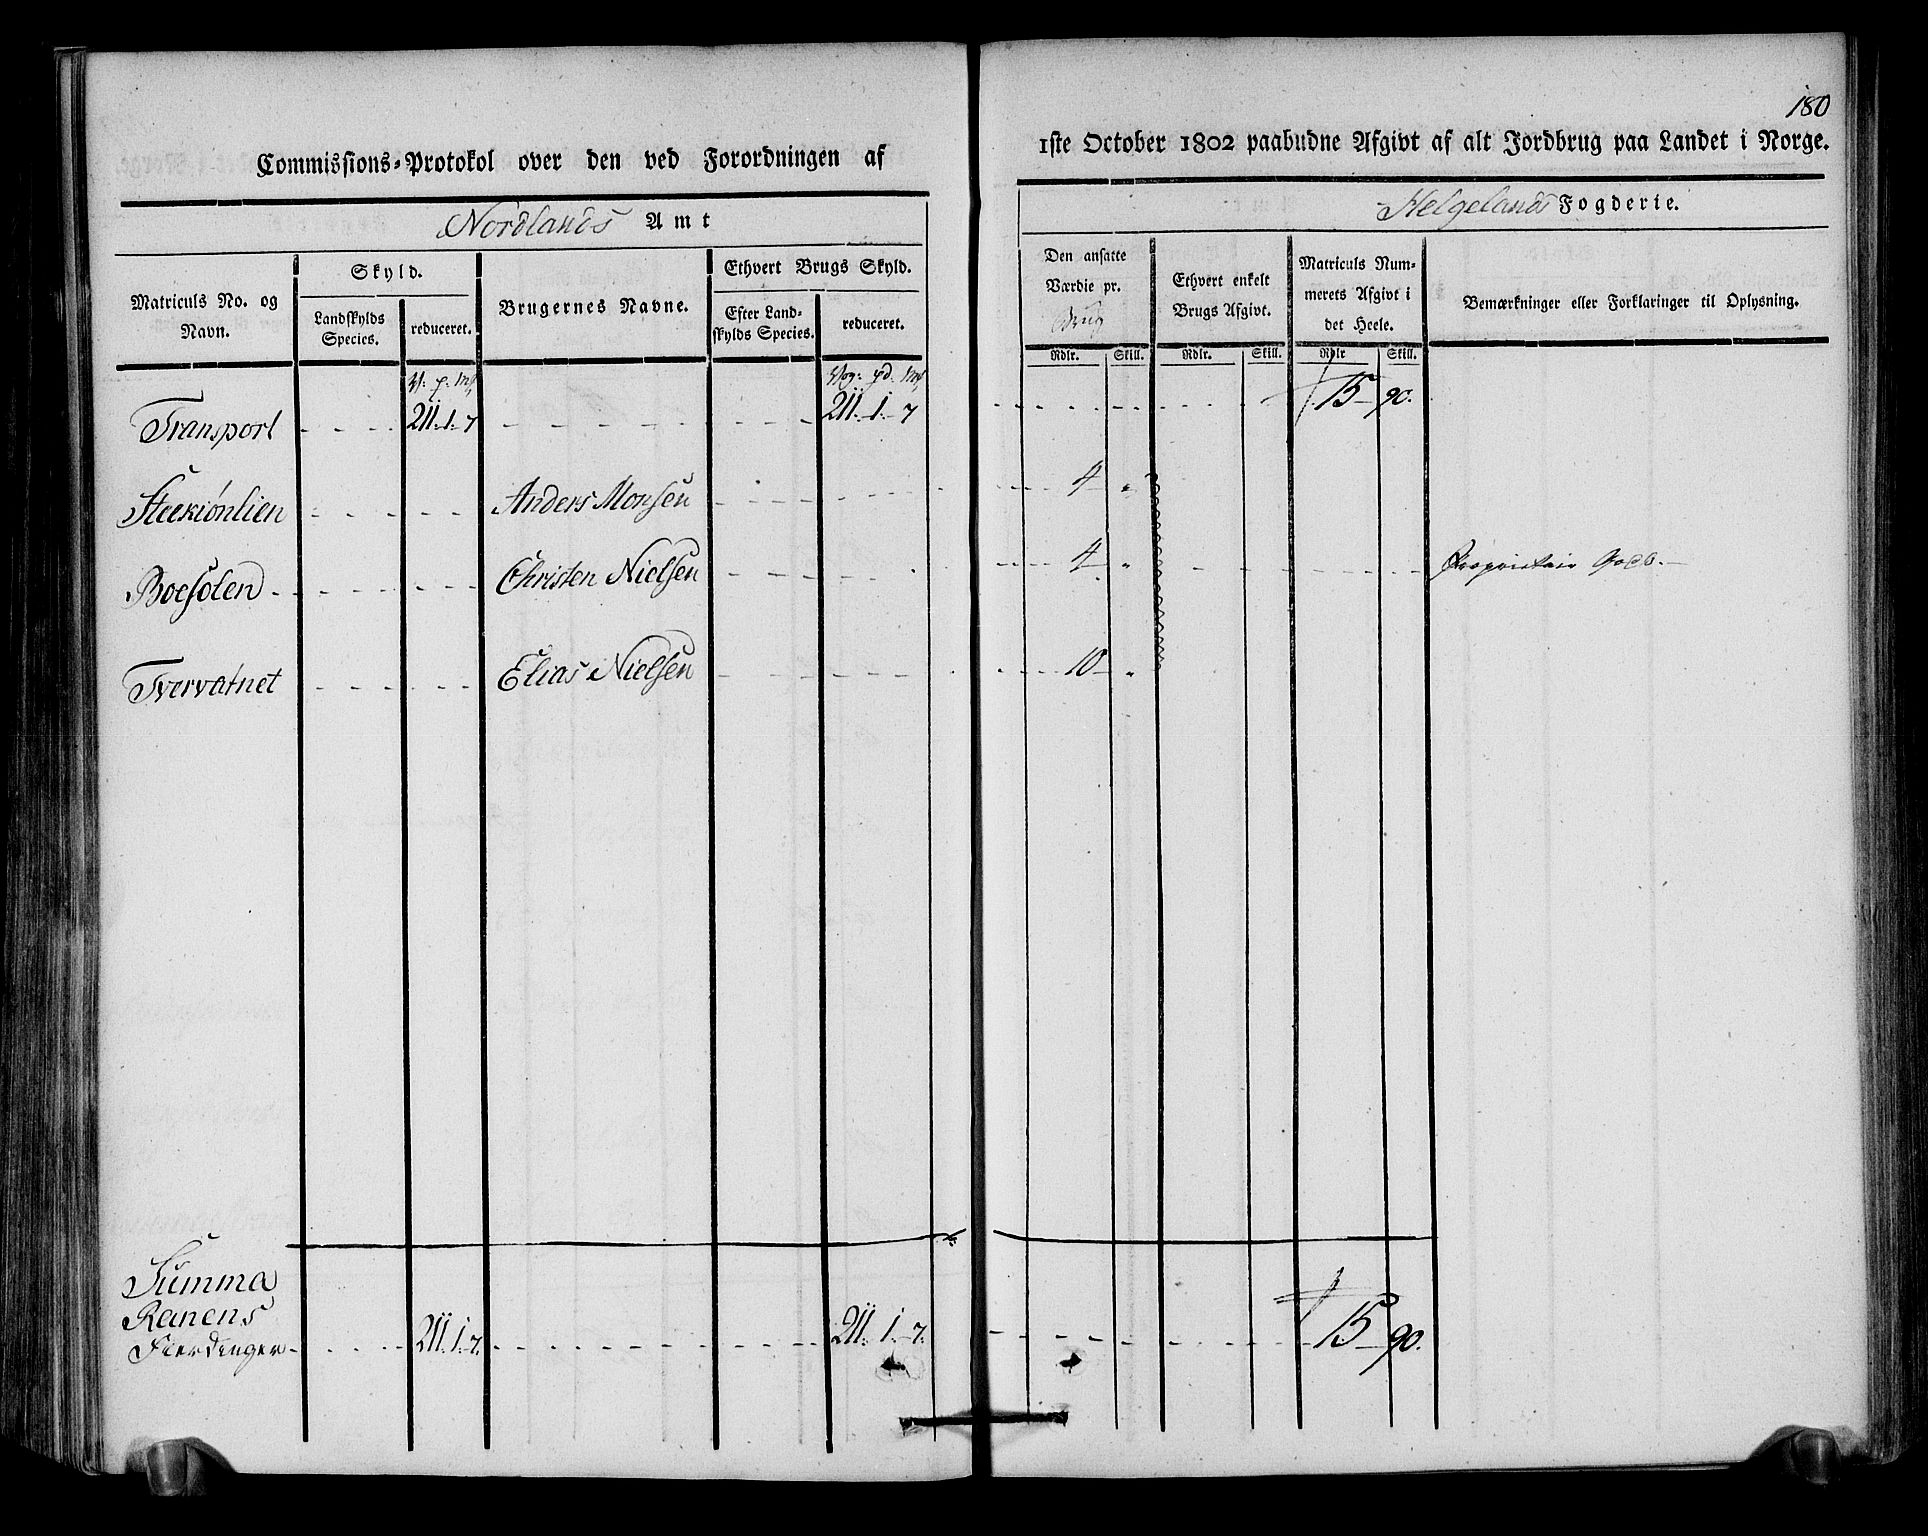 180
Commissions-Protokol over den ved Forordningen af
1ste October 1802 paabudne Afgivt af alt Jordbrug paa Landet i Norge.
Nordlands Amt
Helgelands Fogderie.
Matriculs No. og Navn.
Skyld.
Landskylds Species.
reduceret.
Brugernes Navne.
Ethvert Brugs Skyld.
Efter Landskylds Species.
reduceret.
Den ansatte Værdie pr. Brug
Rdlr. Skill.
Ethvert enkelt Brugs Afgivt.
Rdlr. Skill.
Matriculs Nummerets Afgivt i det Heele.
Rdlr Skill.
Bemærkninger eller Forklaringer til Oplysning.
V: p: mk Vog: pd. mk
Transport 211. 1. 7 211. 1. 7 15 90.
Steekiønlien Anders Monsen 4 "
Boesolen Christen Nielsen 4 " Proprietair Gods.
Tvervatnet Elias Nielsen 10 "
Summa
Ranens
Fierdinger 211. 1. 7. 211. 1. 7. 15 90.